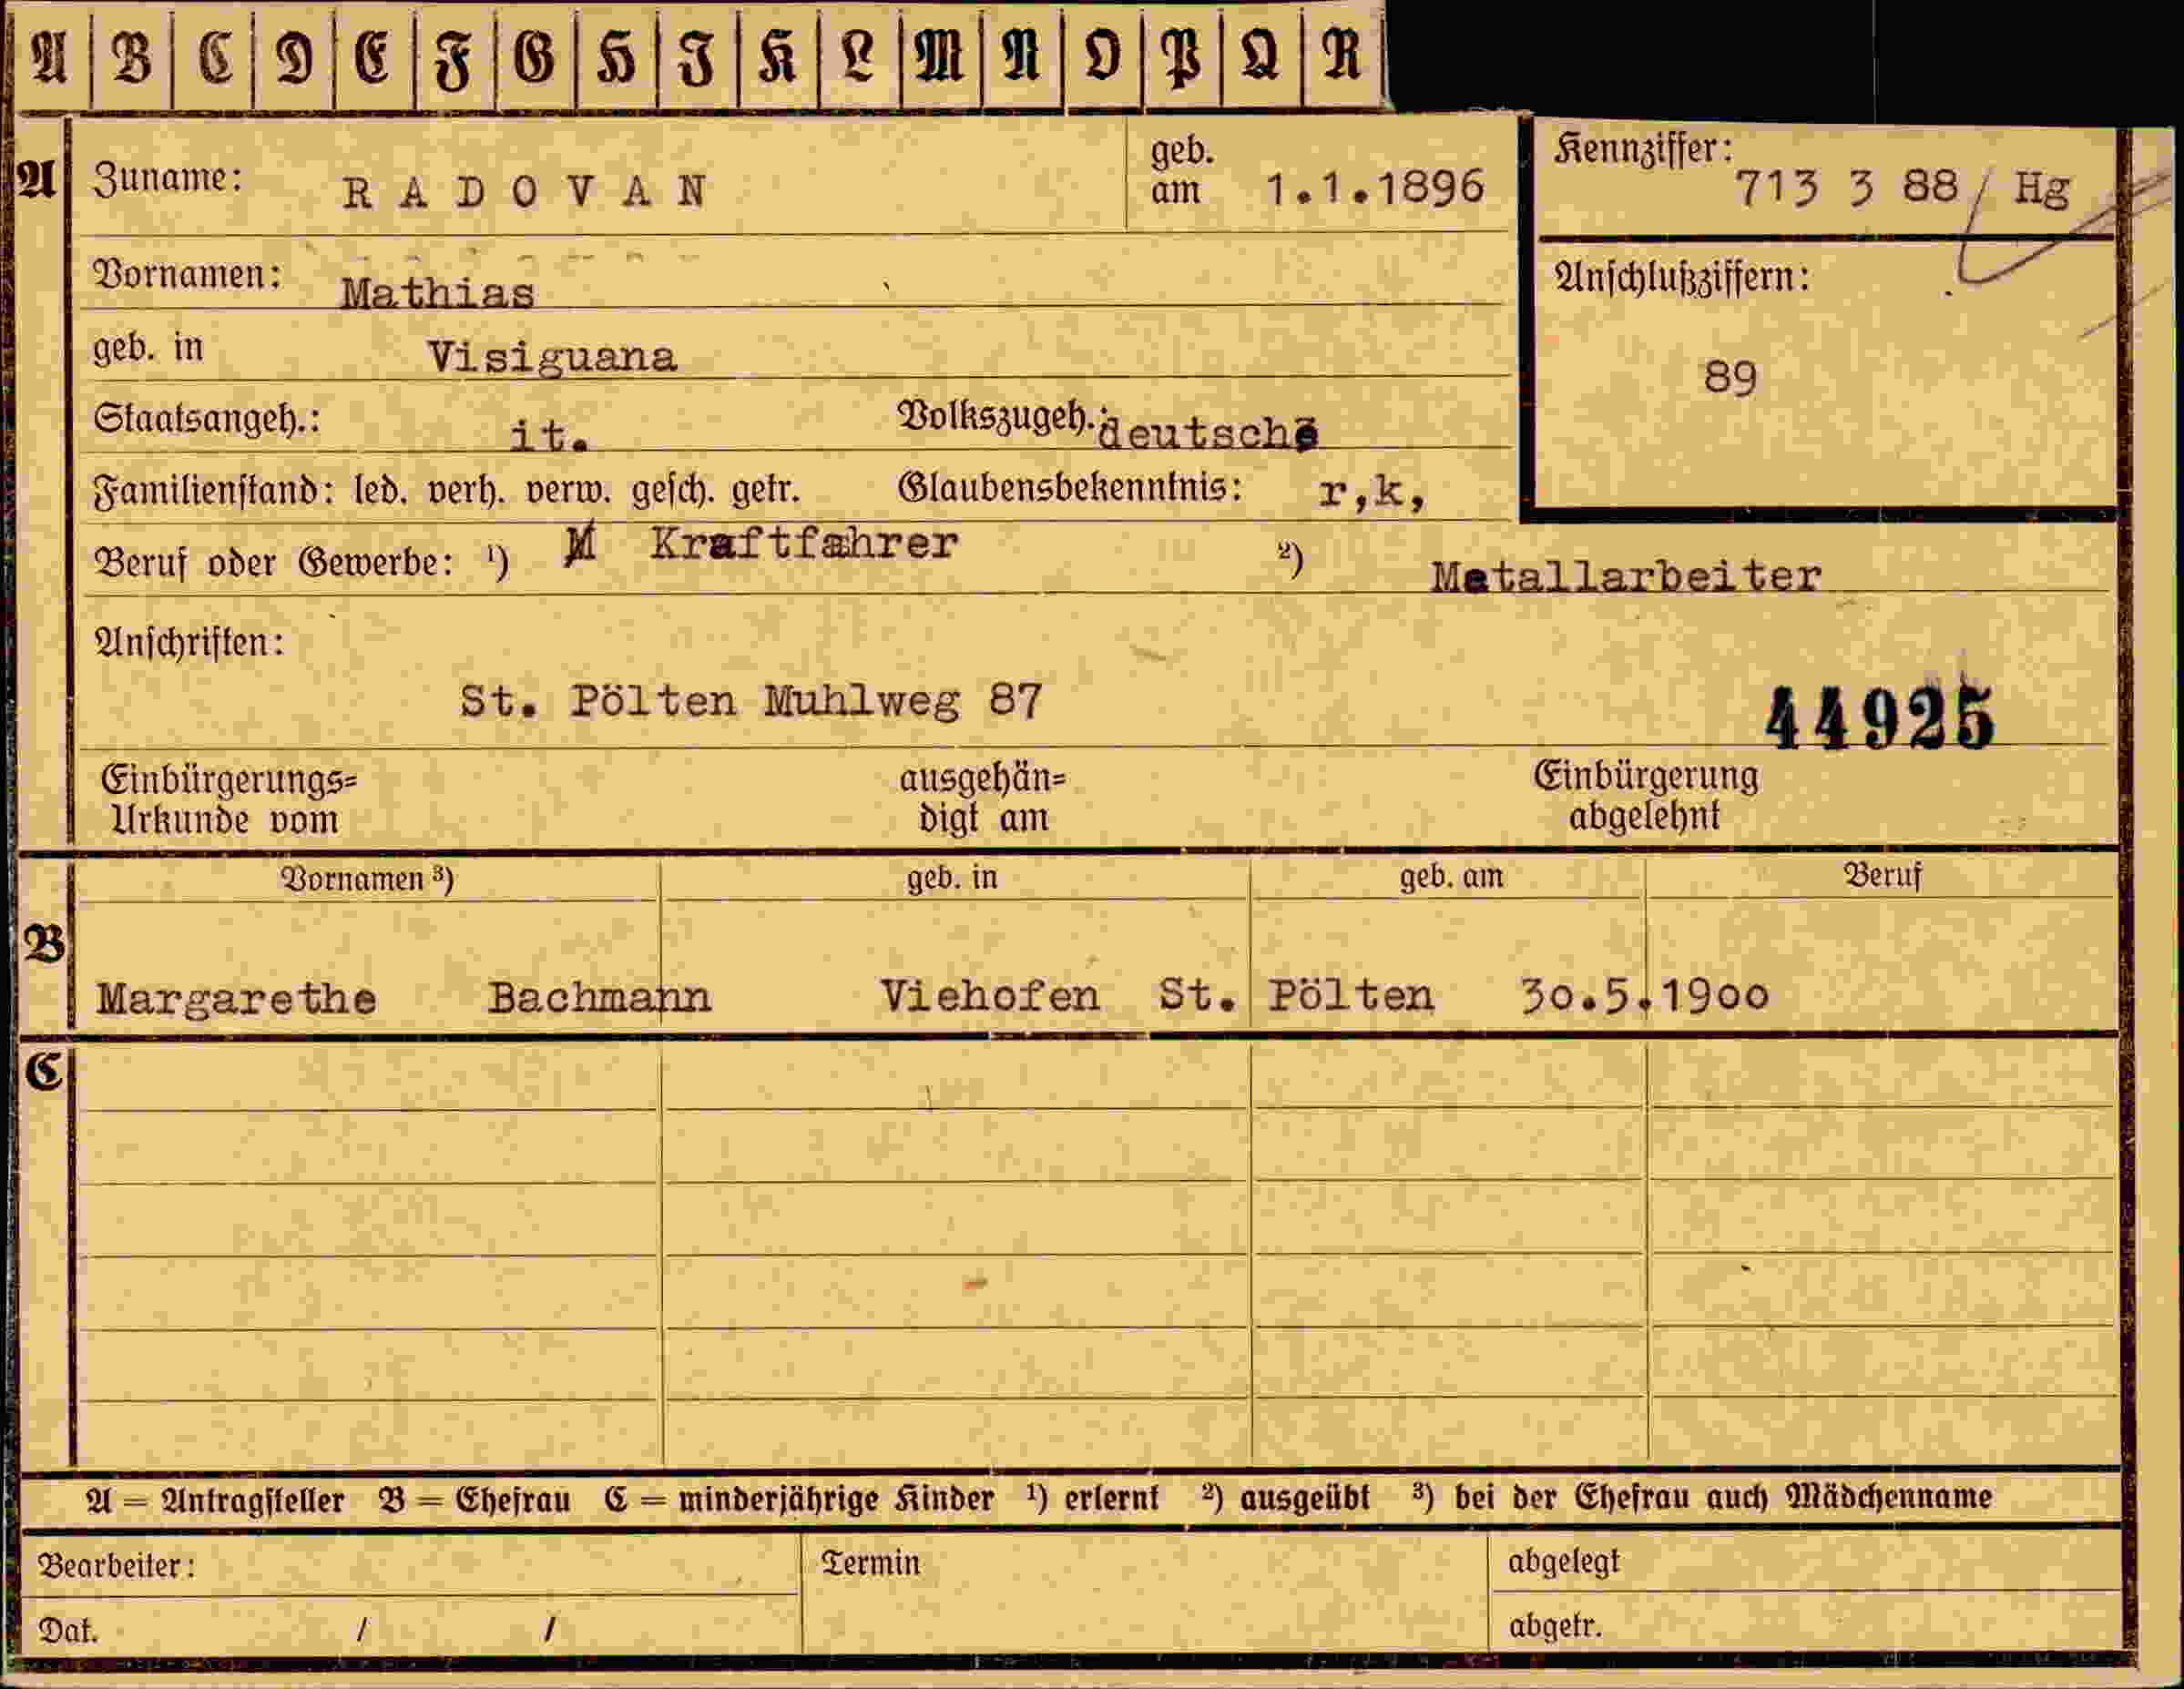 A B C D E F G H I K L M N O P Q R
A Zuname: RADOVAN geb. am 1.1.1896 Kennziffer: 713 3 88/ Hg
Vornamen: Mathias Anschlußziffern:
geb. in Visiguana 89
Staatsangeh.: it. Volkszugeh.: deutsche
Familienstand: led. verh. verw. gesch. getr. Glaubensbekenntnis: r,k,
Beruf oder Gewerbe: ¹) M Kraftfahrer ²) Metallarbeiter
Anschriften:
St. Pölten Muhlweg 87 44925
Einbürgerungs= ausgehän= Einbürgerung
Urkunde vom digt am abgelehnt
Vornamen ³) geb. in geb. am Beruf
B
Margarethe Bachmann Viehofen St. Pölten 30.5.1900
C
A = Antragsteller B = Ehefrau C = minderjährige Kinder ¹) erlernt ²) ausgeübt ³) bei der Ehefrau auch Mädchenname
Bearbeiter: Termin abgelegt
Dat. / / abgetr.